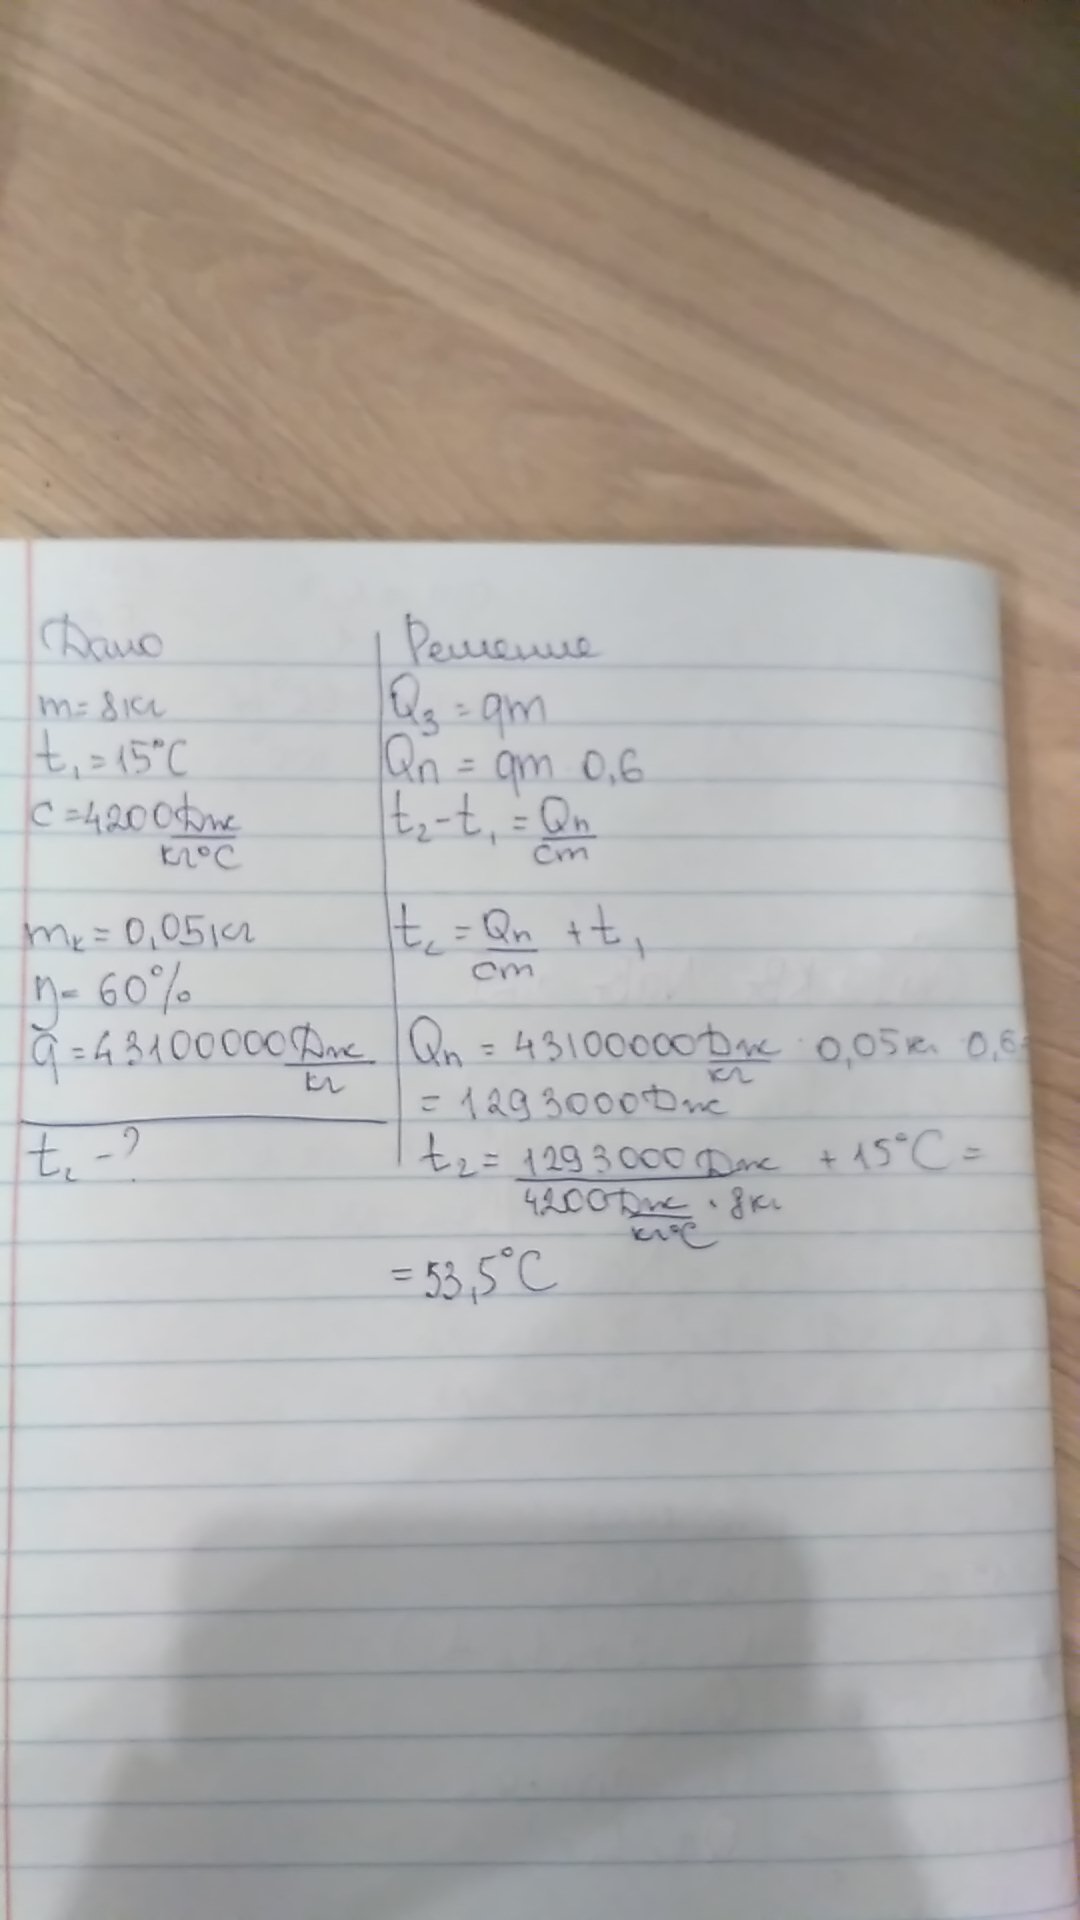 Дано
m = 8 кг
t₁ = 15°C
c = 4200 Дж/кг°C
mк = 0,05 кг
η = 60%
q = 43100000 Дж/кг
t₂ - ?
Решение
Qз = qm
Qп = qm 0,6
t₂ - t₁ = Qп/cm
t₂ = Qп/cm + t₁
Qп = 43100000 Дж/кг · 0,05 кг 0,6
= 1293000 Дж
t₂ = 1293000 Дж/4200 Дж/кг°C · 8 кг + 15°C =
= 53,5°C